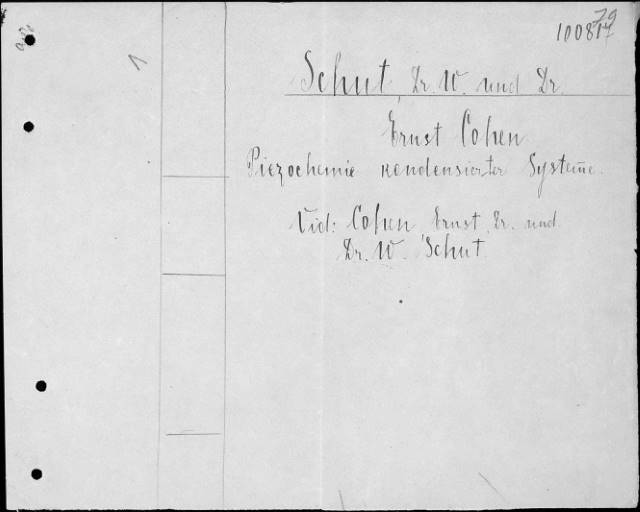 79
100817
1
Schut, Dr. W. und Dr.
Ernst Cohen
Piezochemie kondensierter Systeme.
Vid: Cohen Ernst, Dr. und
Dr. W. Schut